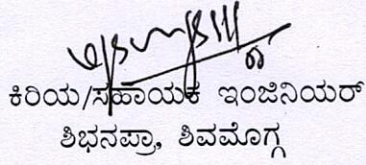 ಕಿರಿಯ/ಸಹಾಯಕ ಇಂಜಿನಿಯರ್
ಶಿಭನಪ್ರಾ, ಶಿವಮೊಗ್ಗ